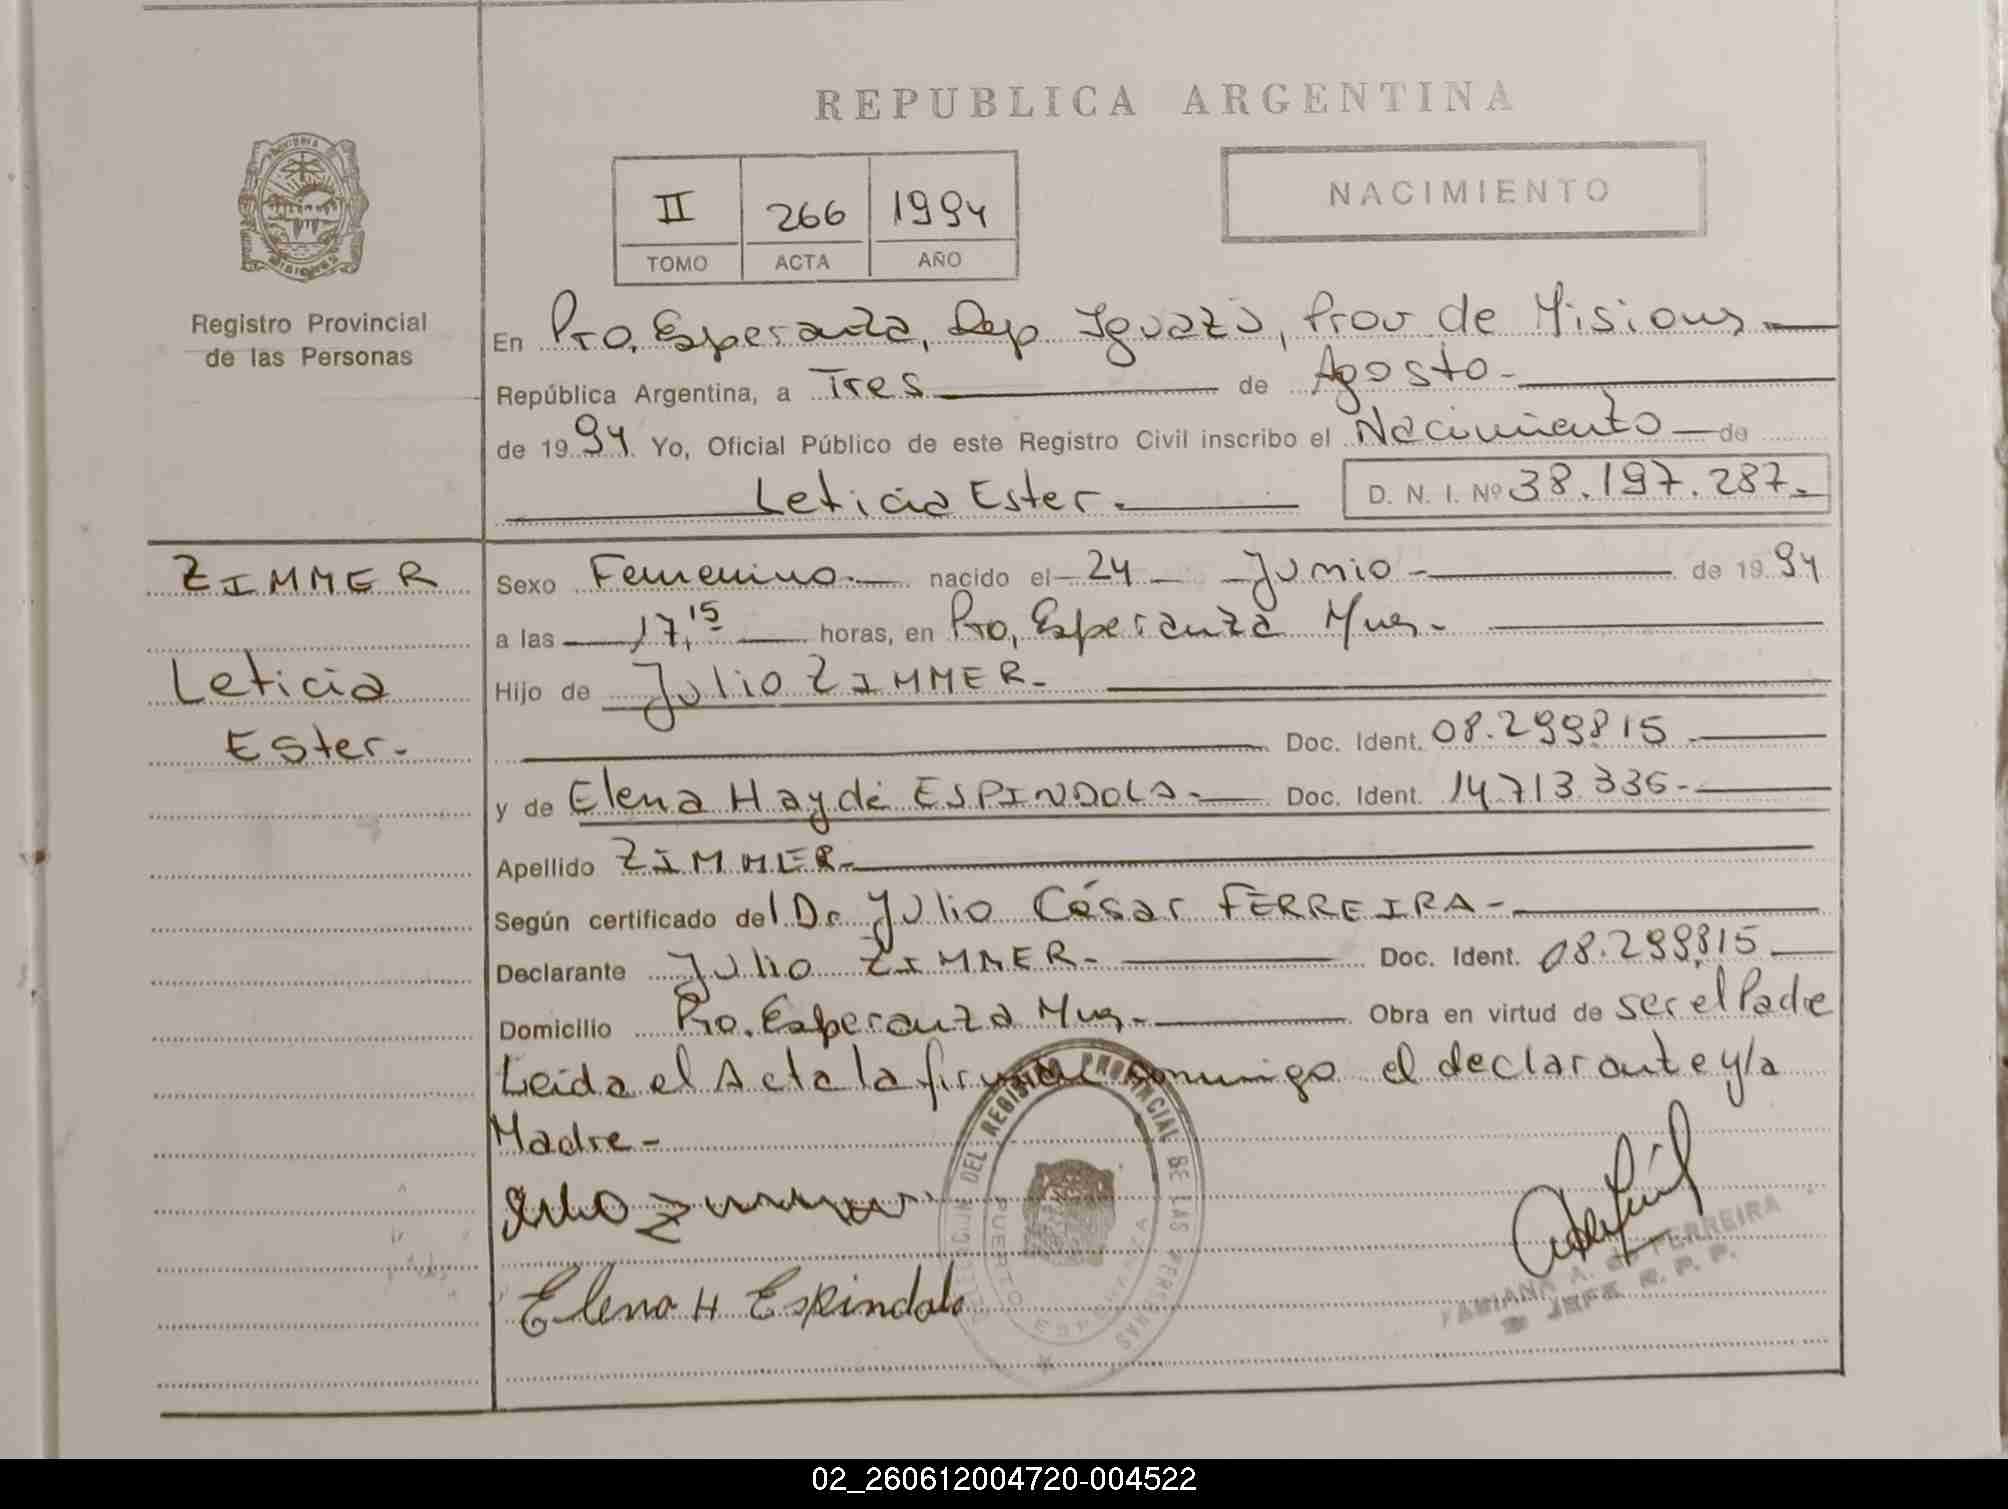 REPUBLICA ARGENTINA
NACIMIENTO
II 266 1994
TOMO ACTA AÑO
Registro Provincial
de las Personas
En Pto. Esperanza, Dep. Iguazú, Prov de Misiones
República Argentina, a Tres de Agosto
de 1994 Yo, Oficial Público de este Registro Civil inscribo el Nacimiento de
Leticia Ester. D. N. I. Nº 38.197.287.
ZIMMER
Leticia
Ester.
Sexo Femenino. nacido el 24 Junio de 1994
a las 17,15 horas, en Pto, Esperanza Mnes.
Hijo de Julio ZIMMER
Doc. Ident. 08.299815
y de Elena Haydé ESPINDOLA Doc. Ident. 14713.336
Apellido ZIMMER
Según certificado del Dr Julio César FERREIRA
Declarante Julio ZIMMER Doc. Ident. 08.299,815
Domicilio Pto. Esperanza Mnes. Obra en virtud de ser el Padre
Leida el Acta la firman conmigo el declarante y/a
Madre
Julio Zimmer
Elena H Espindola
DELEGACION DEL REGISTRO PROVINCIAL DE LAS PERSONAS
PUERTO ESPERANZA
FABIANA A. FERREIRA
JEFE R. P. P.
02_260612004720-004522